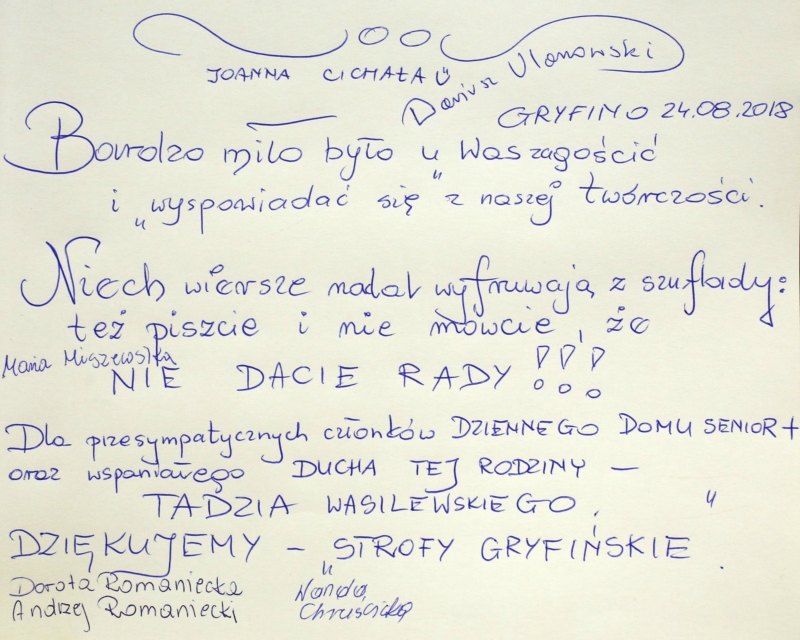 JOANNA CICHAŁA
Dariusz Ulanowski
GRYFINO 24.08.2018
Bardzo miło było u Was zagościć
i „wyspowiadać się" z naszej twórczości.
Niech wiersze nadal wyfruwają z szuflady:
też piszcie i nie mówcie, że
Maria Miszewska
NIE DACIE RADY!!!
Dla przesympatycznych członków DZIENNEGO DOMU SENIOR+
oraz wspaniałego DUCHA TEJ RODZINY –
TADZIA WASILEWSKIEGO.
DZIĘKUJEMY – „STROFY GRYFIŃSKIE".
Dorota Romaniecka
Andrzej Romaniecki
Wanda